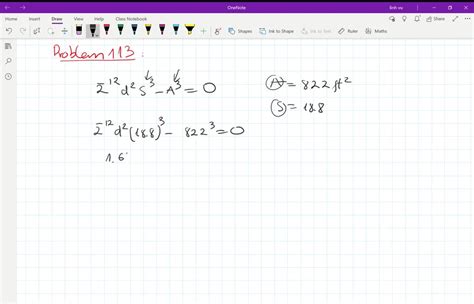 OneNote
linh vu
File Home Insert Draw View Help Class Notebook
Shapes Ink to Shape Ink to Text Math
Problem 113:
2^-12 d^2 S^3 - A^3 = 0
A = 822 ft^2
S = 18.8
2^-12 d^2 (18.8)^3 - 822^3 = 0
1.6